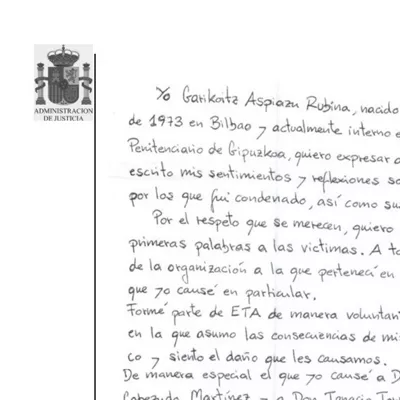 ADMINISTRACION
DE JUSTICIA
Yo Garikoitz Aspiazu Rubina, nacido
de 1973 en Bilbao y actualmente interno e
Penitenciario de Gipuzkoa, quiero expresar
escrito mis sentimientos y reflexiones so
por los que fui condenado, así como su
Por el respeto que se merecen, quiero
primeras palabras a las victimas. A to
de la organización a la que pertenecí en
que yo causé en particular.
Formé parte de ETA de manera voluntar
en la que asumo las consecuencias de mi
co y siento el daño que les causamos.
De manera especial el que yo causé a D
Cabezudo Martínez y a Don Ignacio